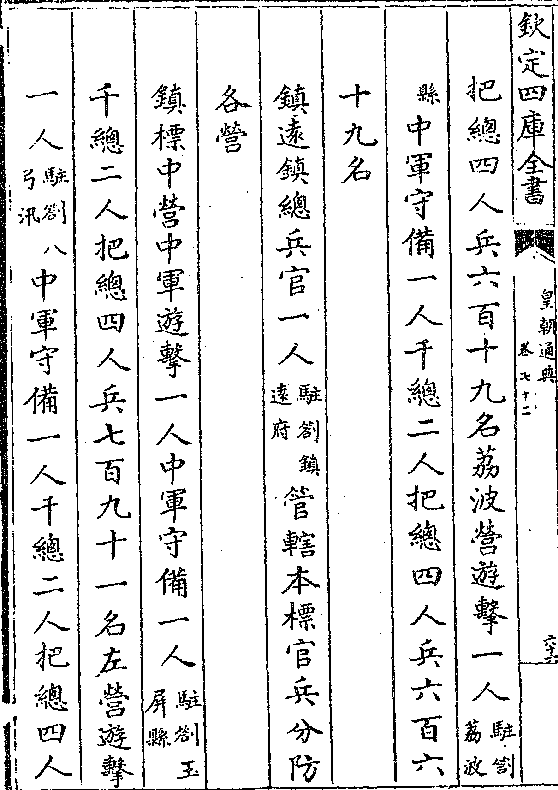 欽定四庫全書
皇朝通典
卷七十二
六十六
把總四人兵六百十九名荔波營遊擊一人駐劄荔波
縣中軍守備一人千總二人把總四人兵六百六
十九名
鎮遠鎮總兵官一人駐劄鎮遠府管轄本標官兵分防
各營
鎮標中營中軍遊擊一人中軍守備一人駐劄玉屏縣
千總二人把總四人兵七百九十一名左營遊擊
一人駐劄八弓汛中軍守備一人千總二人把總四人